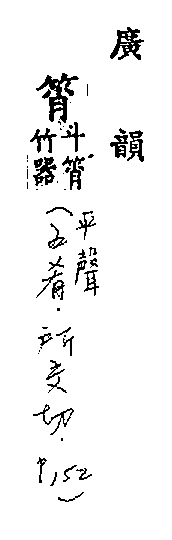 廣韻
筲
斗筲
竹器
(平聲
五肴.所交切.
P.152)